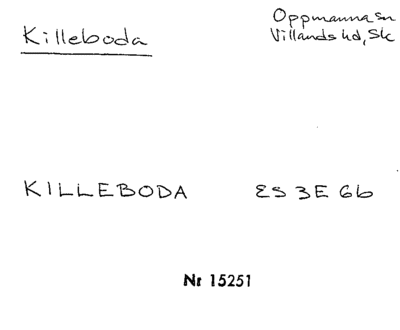 Killeboda
Oppmanna sn
Villands hd, Sk
KILLEBODA ES 3E 6b
Nr 15251